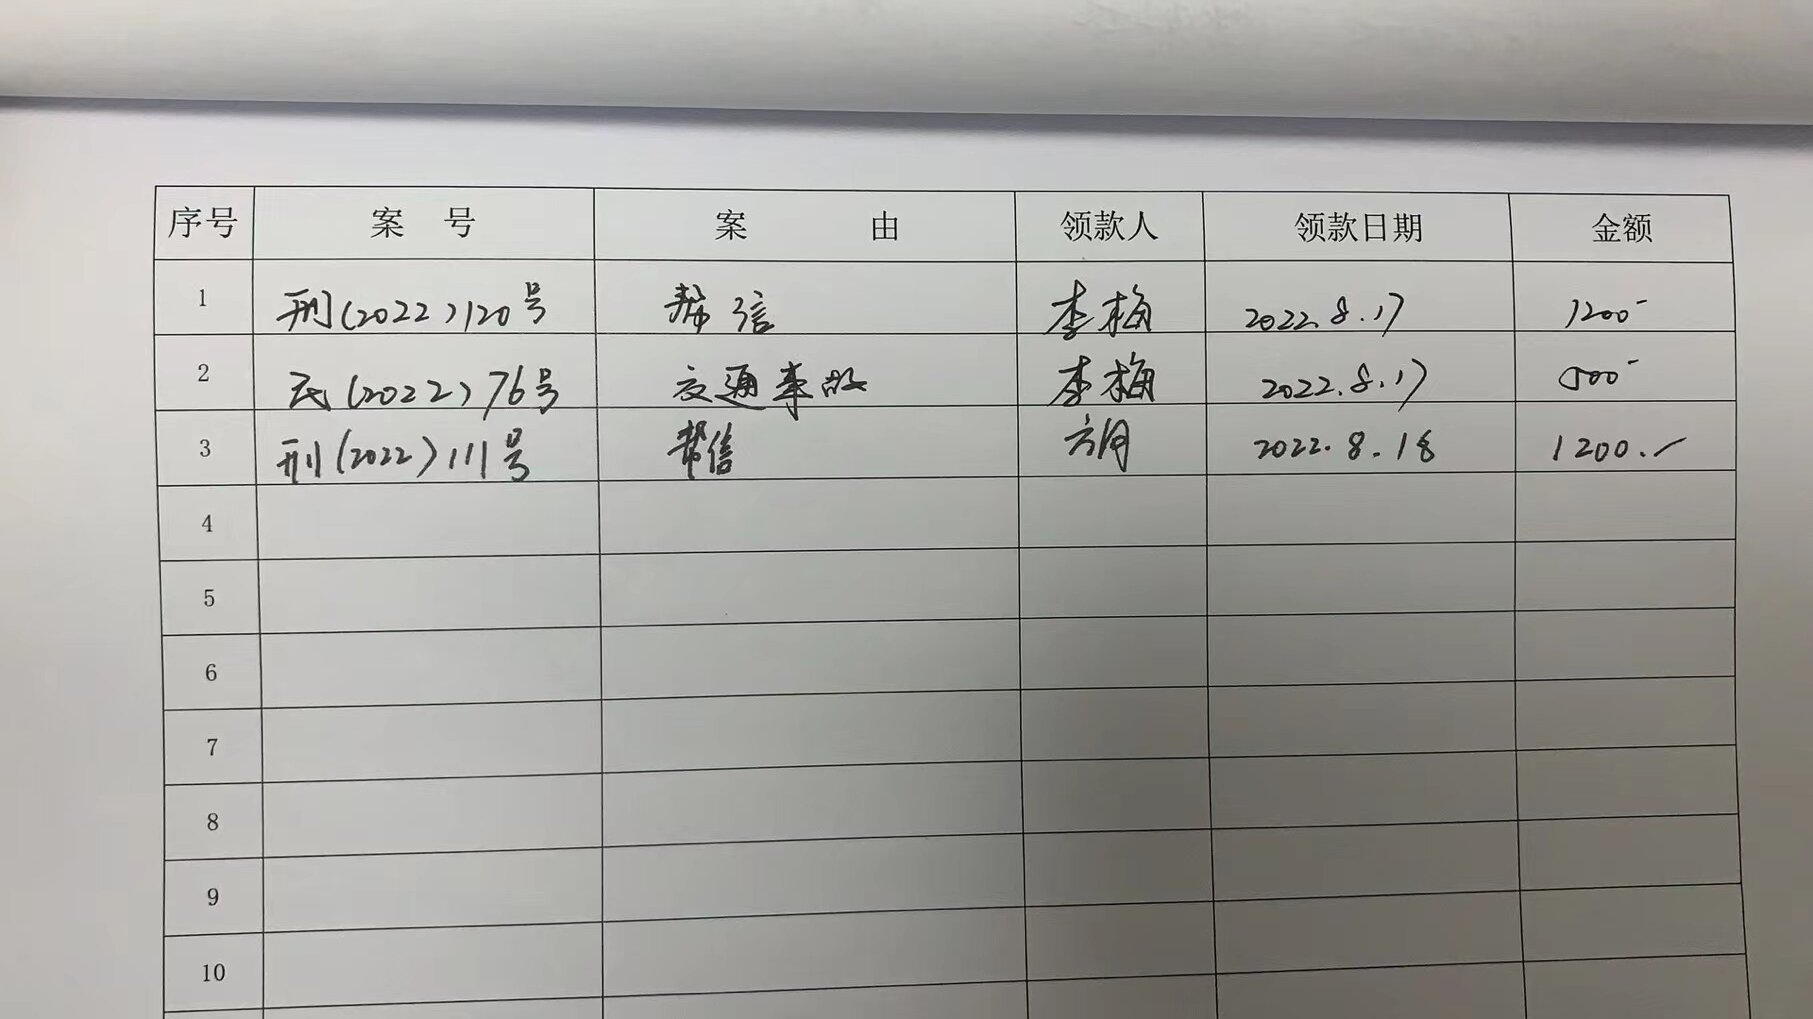 序号 案 号 案 由 领款人 领款日期 金额
1 刑(2022)120号 帮信 李梅 2022.8.17 1200-
2 民(2022)76号 交通事故 李梅 2022.8.17 500-
3 刑(2022)111号 帮信 方月 2022.8.18 1200.-
4
5
6
7
8
9
10